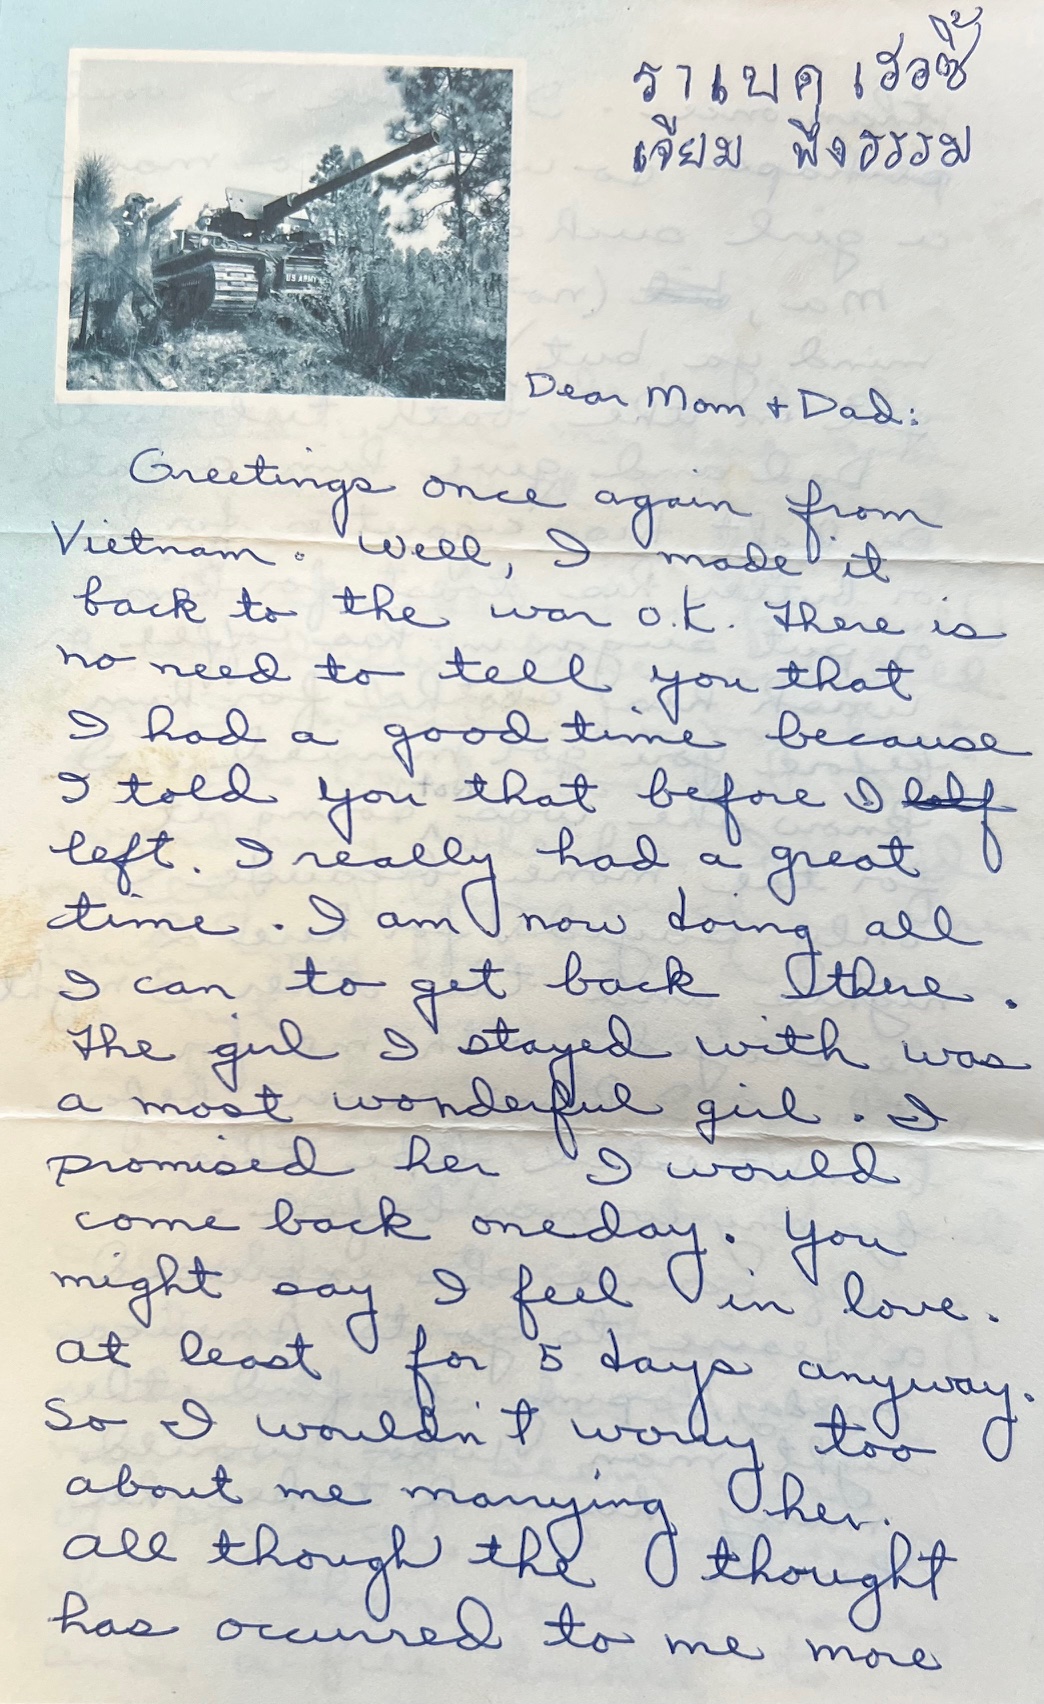 ราเบค เฮอซี้
เจียม พึ่งธรรม
US ARMY
Dear Mom + Dad:
Greetings once again from
Vietnam. Well, I made it
back to the war o.k. There is
no need to tell you that
I had a good time because
I told you that before I
left. I really had a great
time. I am now doing all
I can to get back there.
The girl I stayed with was
a most wonderful girl. I
promised her I would
come back oneday. You
might say I feel in love.
At least for 5 days anyway.
So I wouldn't worry too
about me marrying her.
All though the thought
has occurred to me more